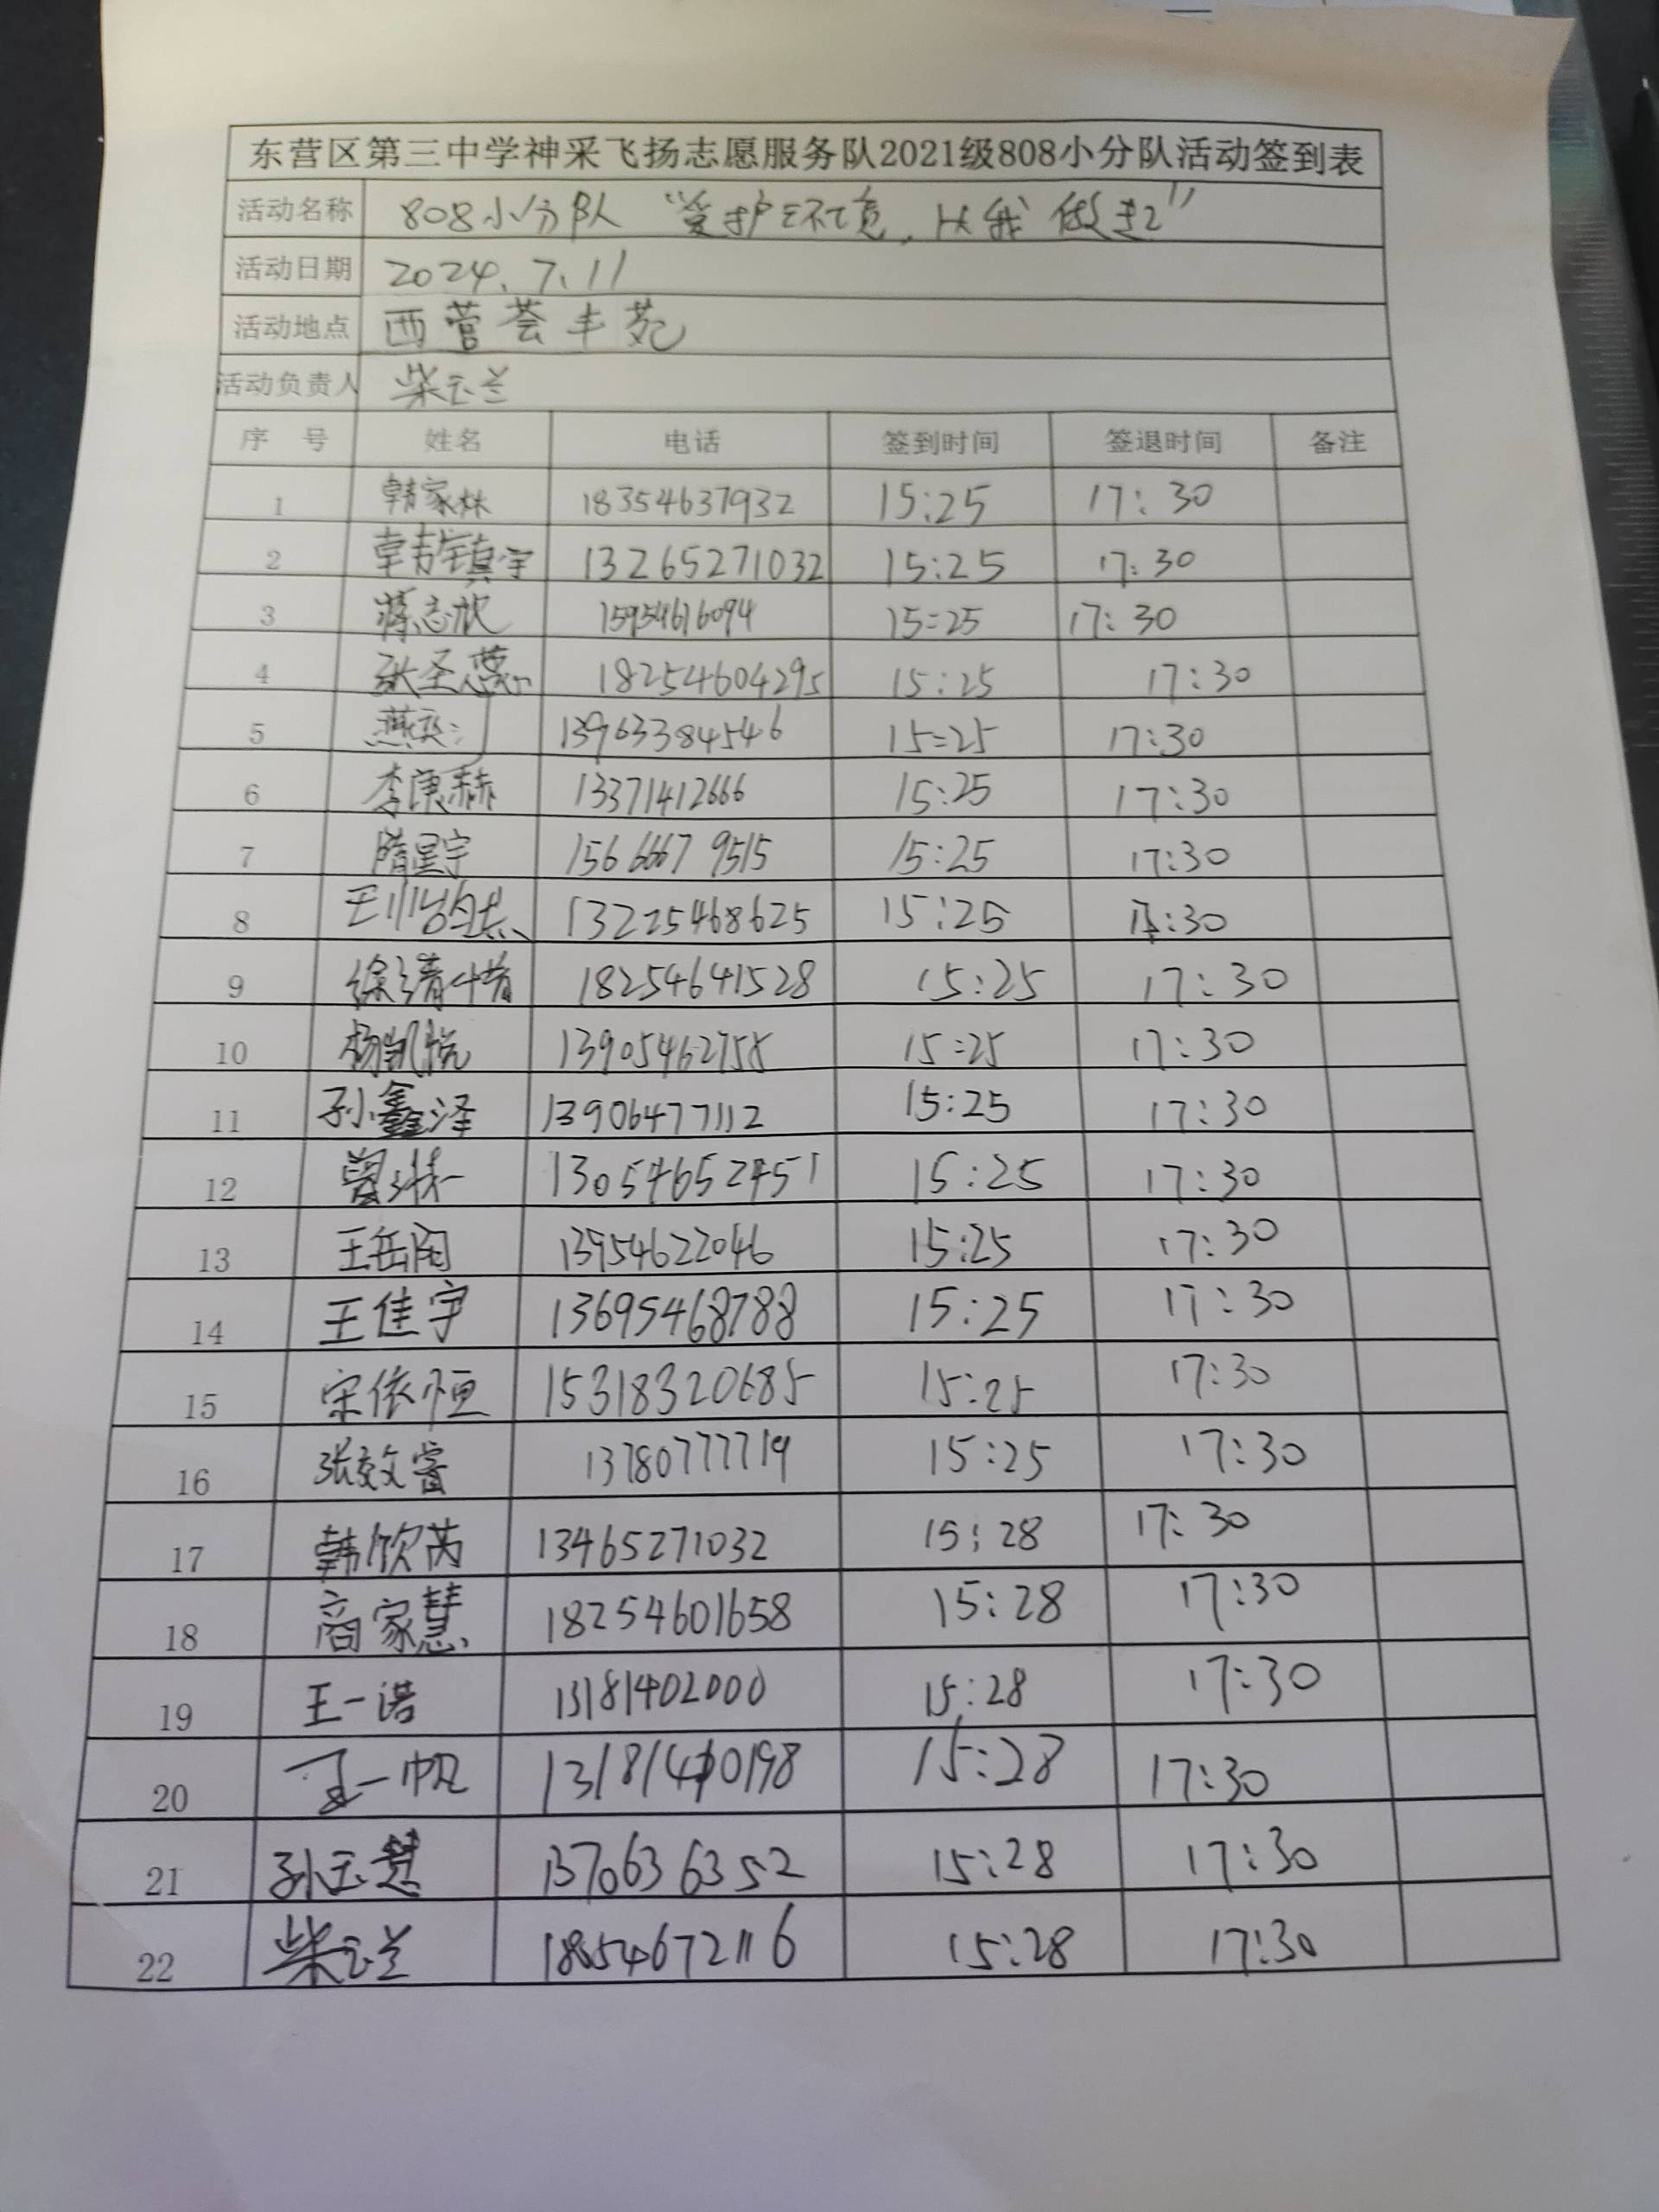 东营区第三中学神采飞扬志愿服务队2021级808小分队活动签到表
活动名称 808小分队“爱护环境，从我做起”
活动日期 2024.7.11
活动地点 西营荟丰苑
活动负责人 柴玉兰
序 号 姓名 电话 签到时间 签退时间 备注
1 韩家林 18354637932 15:25 17:30
2 韩镇宇 13265271032 15:25 17:30
3 蒋志欣 15954616094 15:25 17:30
4 张圣慧 18254604295 15:25 17:30
5 13963384546 15:25 17:30
6 李庚赫 13371412666 15:25 17:30
7 隋星宇 15666679515 15:25 17:30
8 13225468625 15:25 17:30
9 徐清怡 18254641528 15:25 17:30
10 杨凯悦 13905462758 15:25 17:30
11 孙鑫泽 13906477112 15:25 17:30
12 13054652451 15:25 17:30
13 王岳阳 13954622046 15:25 17:30
14 王佳宇 13695468788 15:25 17:30
15 宋依恒 15318320685 15:25 17:30
16 张敏睿 13780777719 15:25 17:30
17 韩欣芮 13465271032 15:28 17:30
18 商家慧 18254601658 15:28 17:30
19 王一诺 13181402000 15:28 17:30
20 王一帆 13181410198 15:28 17:30
21 孙玉慧 1370636352 15:28 17:30
22 柴玉兰 18654672116 15:28 17:30